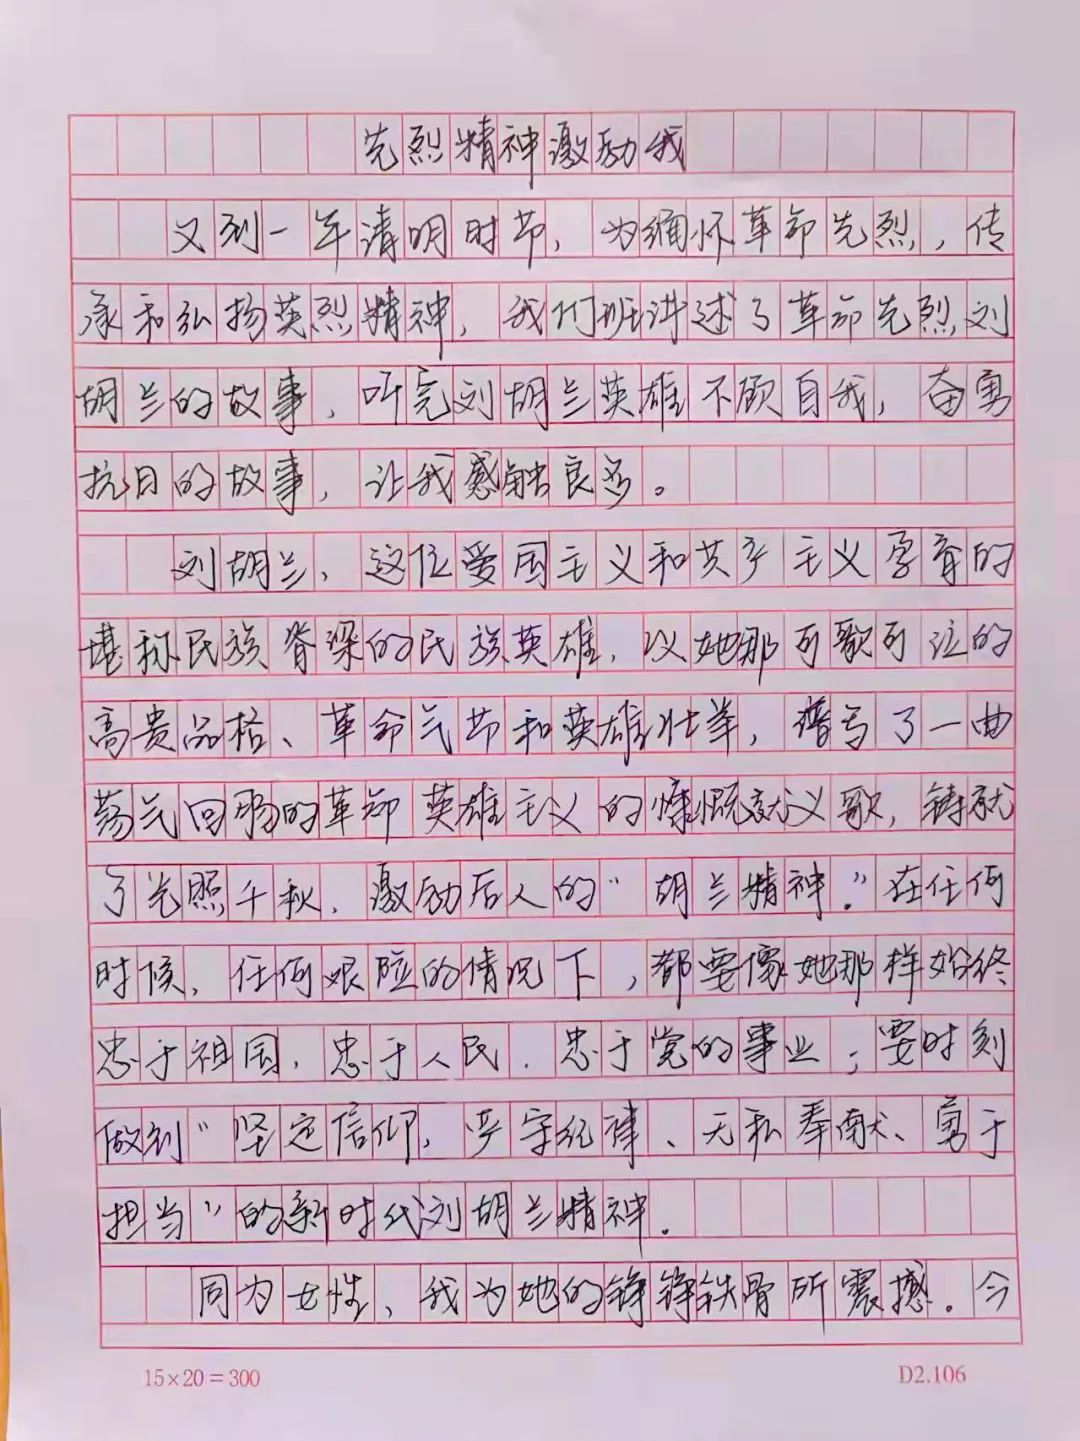 先烈精神激励我
又到一年清明时节，为缅怀革命先烈，传
承和弘扬英烈精神，我们班讲述了革命先烈刘
胡兰的故事，听完刘胡兰英雄不顾自我，奋勇
抗日的故事，让我感触良多。
刘胡兰，这位爱国主义和共产主义孕育的
堪称民族脊梁的民族英雄，以她那可歌可泣的
高贵品格、革命气节和英雄壮举，谱写了一曲
荡气回肠的革命英雄主义的慷慨就义歌，铸就
了光照千秋、激励后人的“胡兰精神。”在任何
时候、任何艰险的情况下，都要像她那样始终
忠于祖国，忠于人民，忠于党的事业；要时刻
做到“坚定信仰，严守纪律、无私奉献、勇于
担当”的新时代刘胡兰精神。
同为女性、我为她的铮铮铁骨所震撼。今
15×20＝300
D2.106